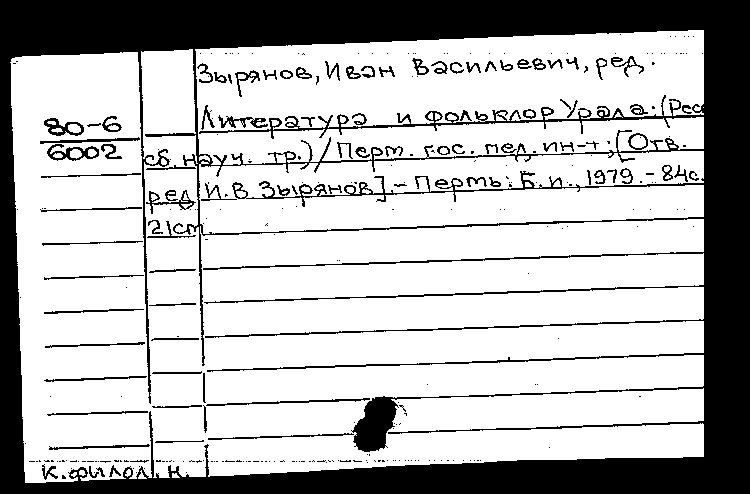 Зырянов, Иван Васильевич, ред.
80-6 Литература и фольклор Урала: (Респ
6002 сб. науч. тр.) / Перм. гос. пед. ин-т; [Отв.
ред И.В. Зырянов]. - Пермь: Б.и., 1979. - 84с.
21см.
К.филол.н.